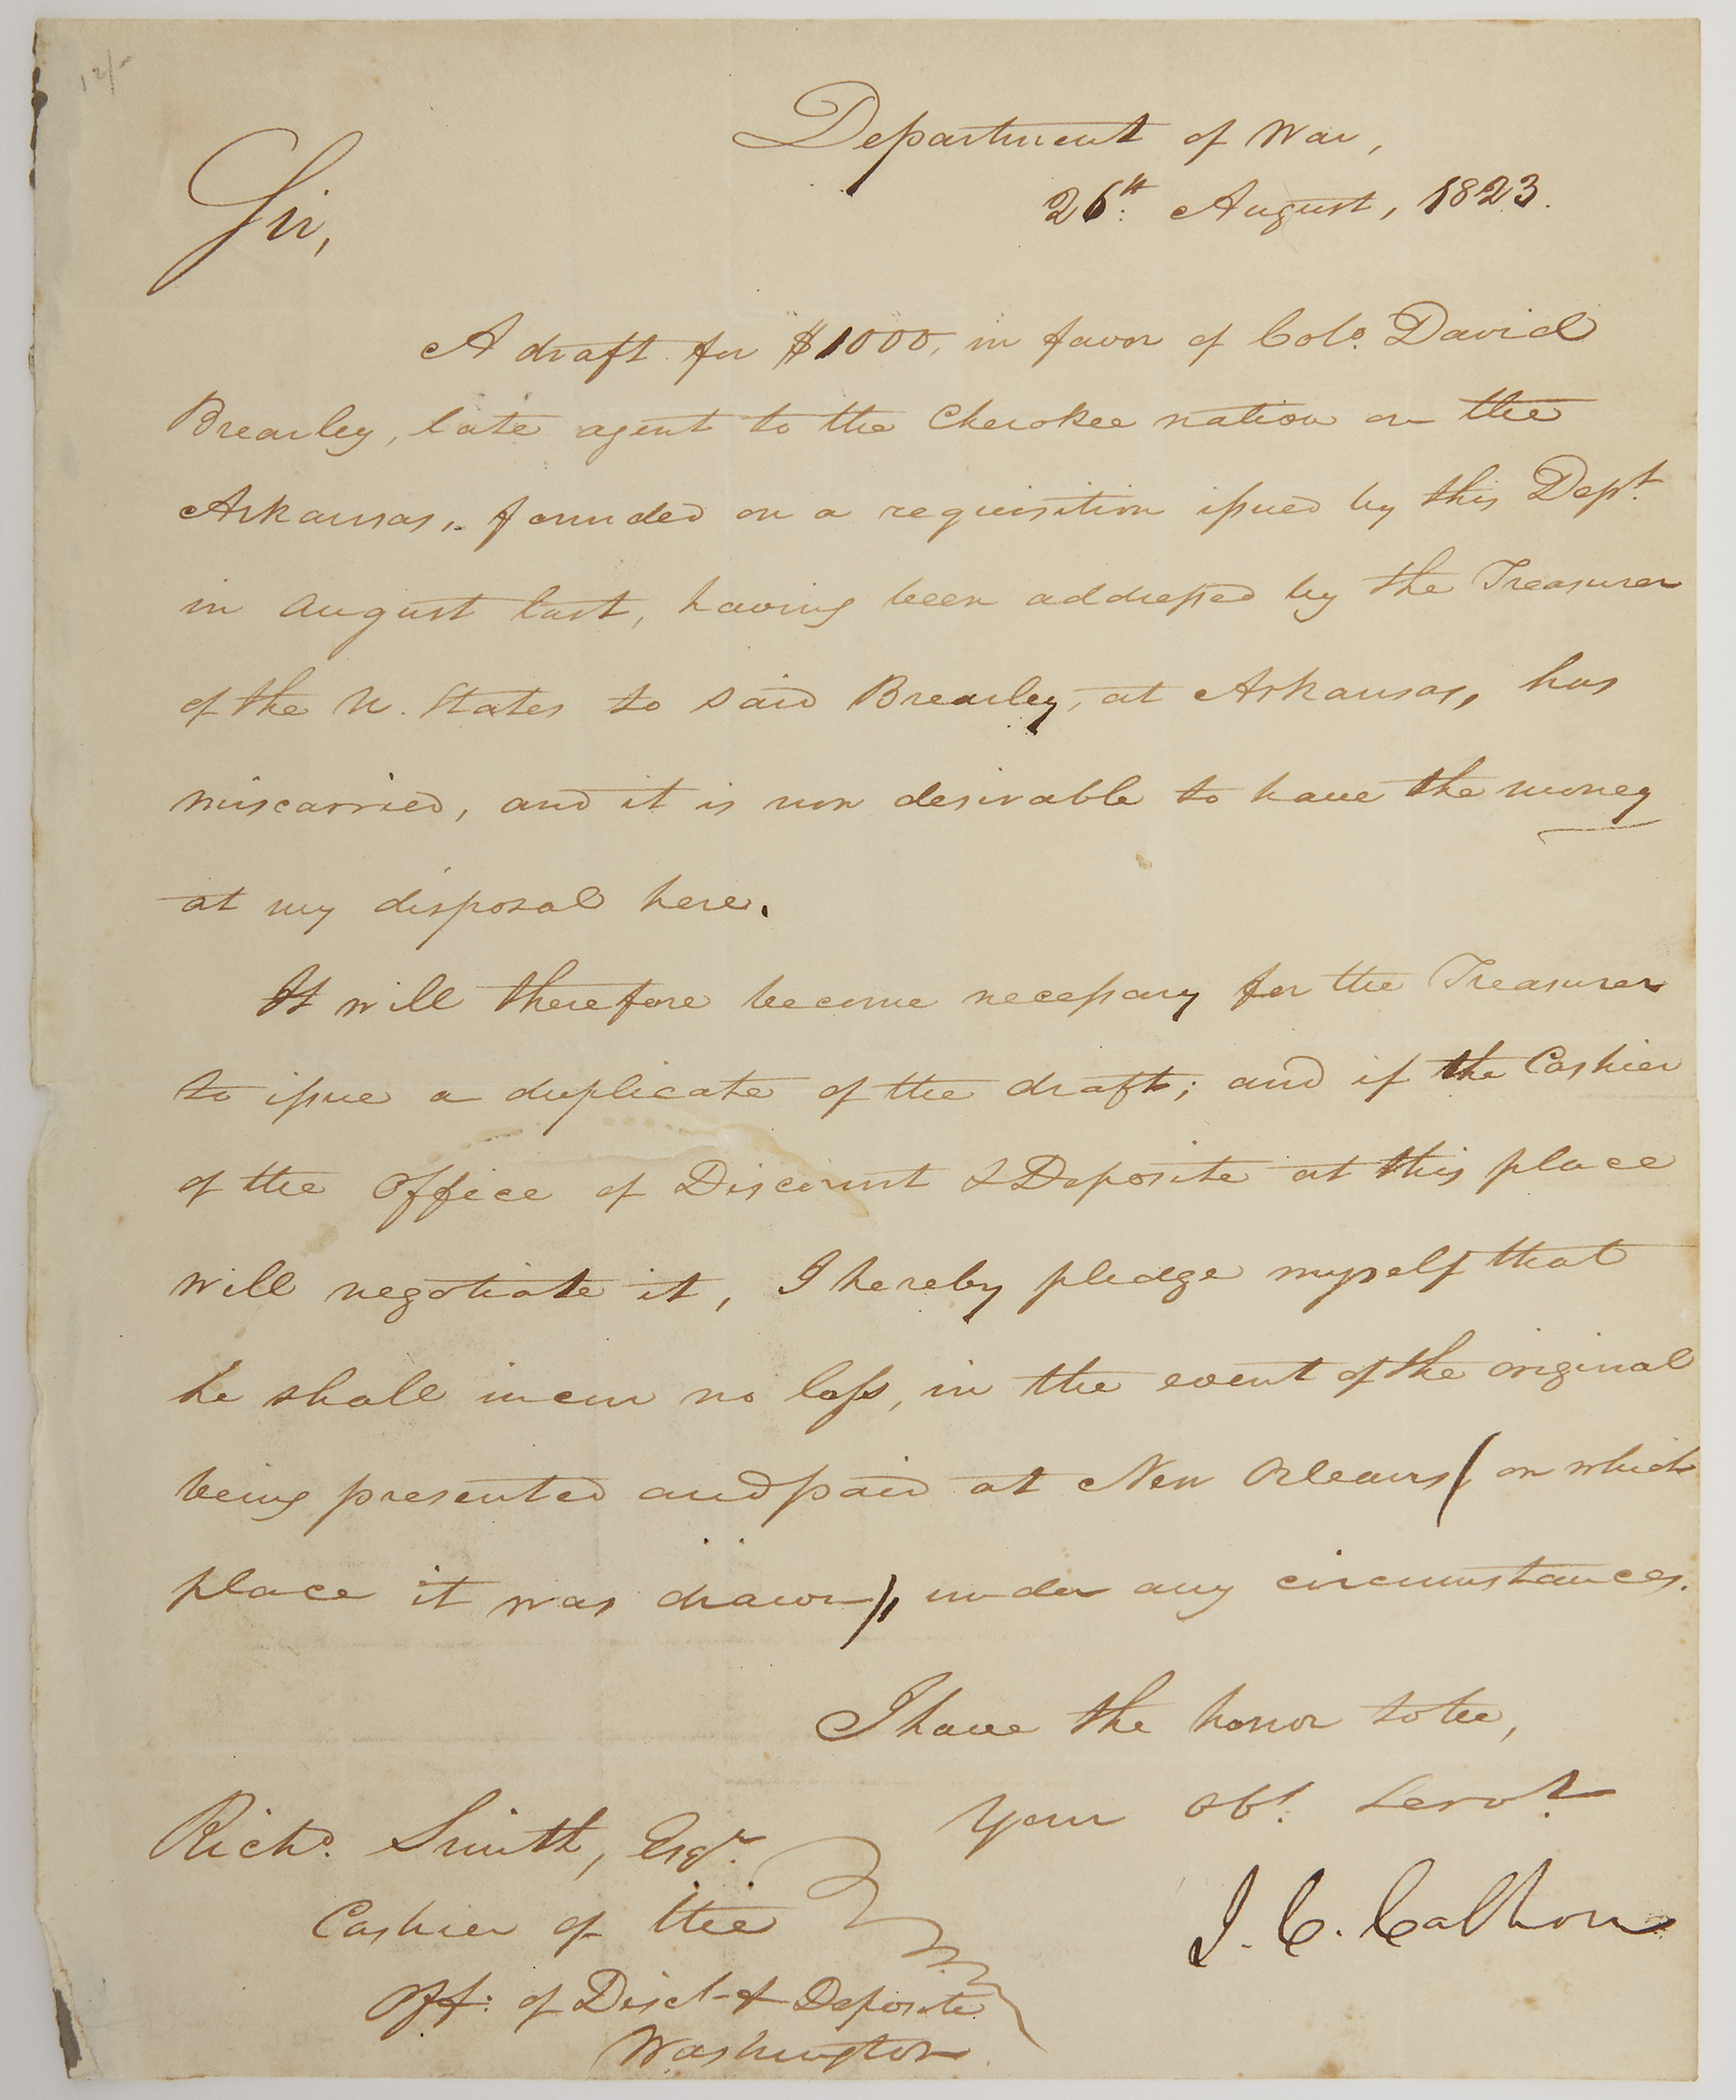 12/-
Department of War,
26th: August, 1823.
Sir,
A draft for $1000, in favor of Colo. David
Brearley, late agent to the Cherokee nation on the
Arkansas, founded on a requisition issued by this Dept.
in August last, having been addressed by the Treasurer
of the U. States to said Brearley, at Arkansas, has
miscarried, and it is now desirable to have the money
at my disposal here.
It will therefore become necessary for the Treasurer
to issue a duplicate of the draft; and if the Cashier
of the Office of Discount & Deposite at this place
will negotiate it, I hereby pledge myself that
he shall incur no loss, in the event of the original
being presented and paid at New Orleans (on which
place it was drawn), under any circumstances.
I have the honor to be,
Your Obt. Servt.
J. C. Calhoun
Richd. Smith, Esqr.
Cashier of the
Off: of Disct. & Deposite
Washington